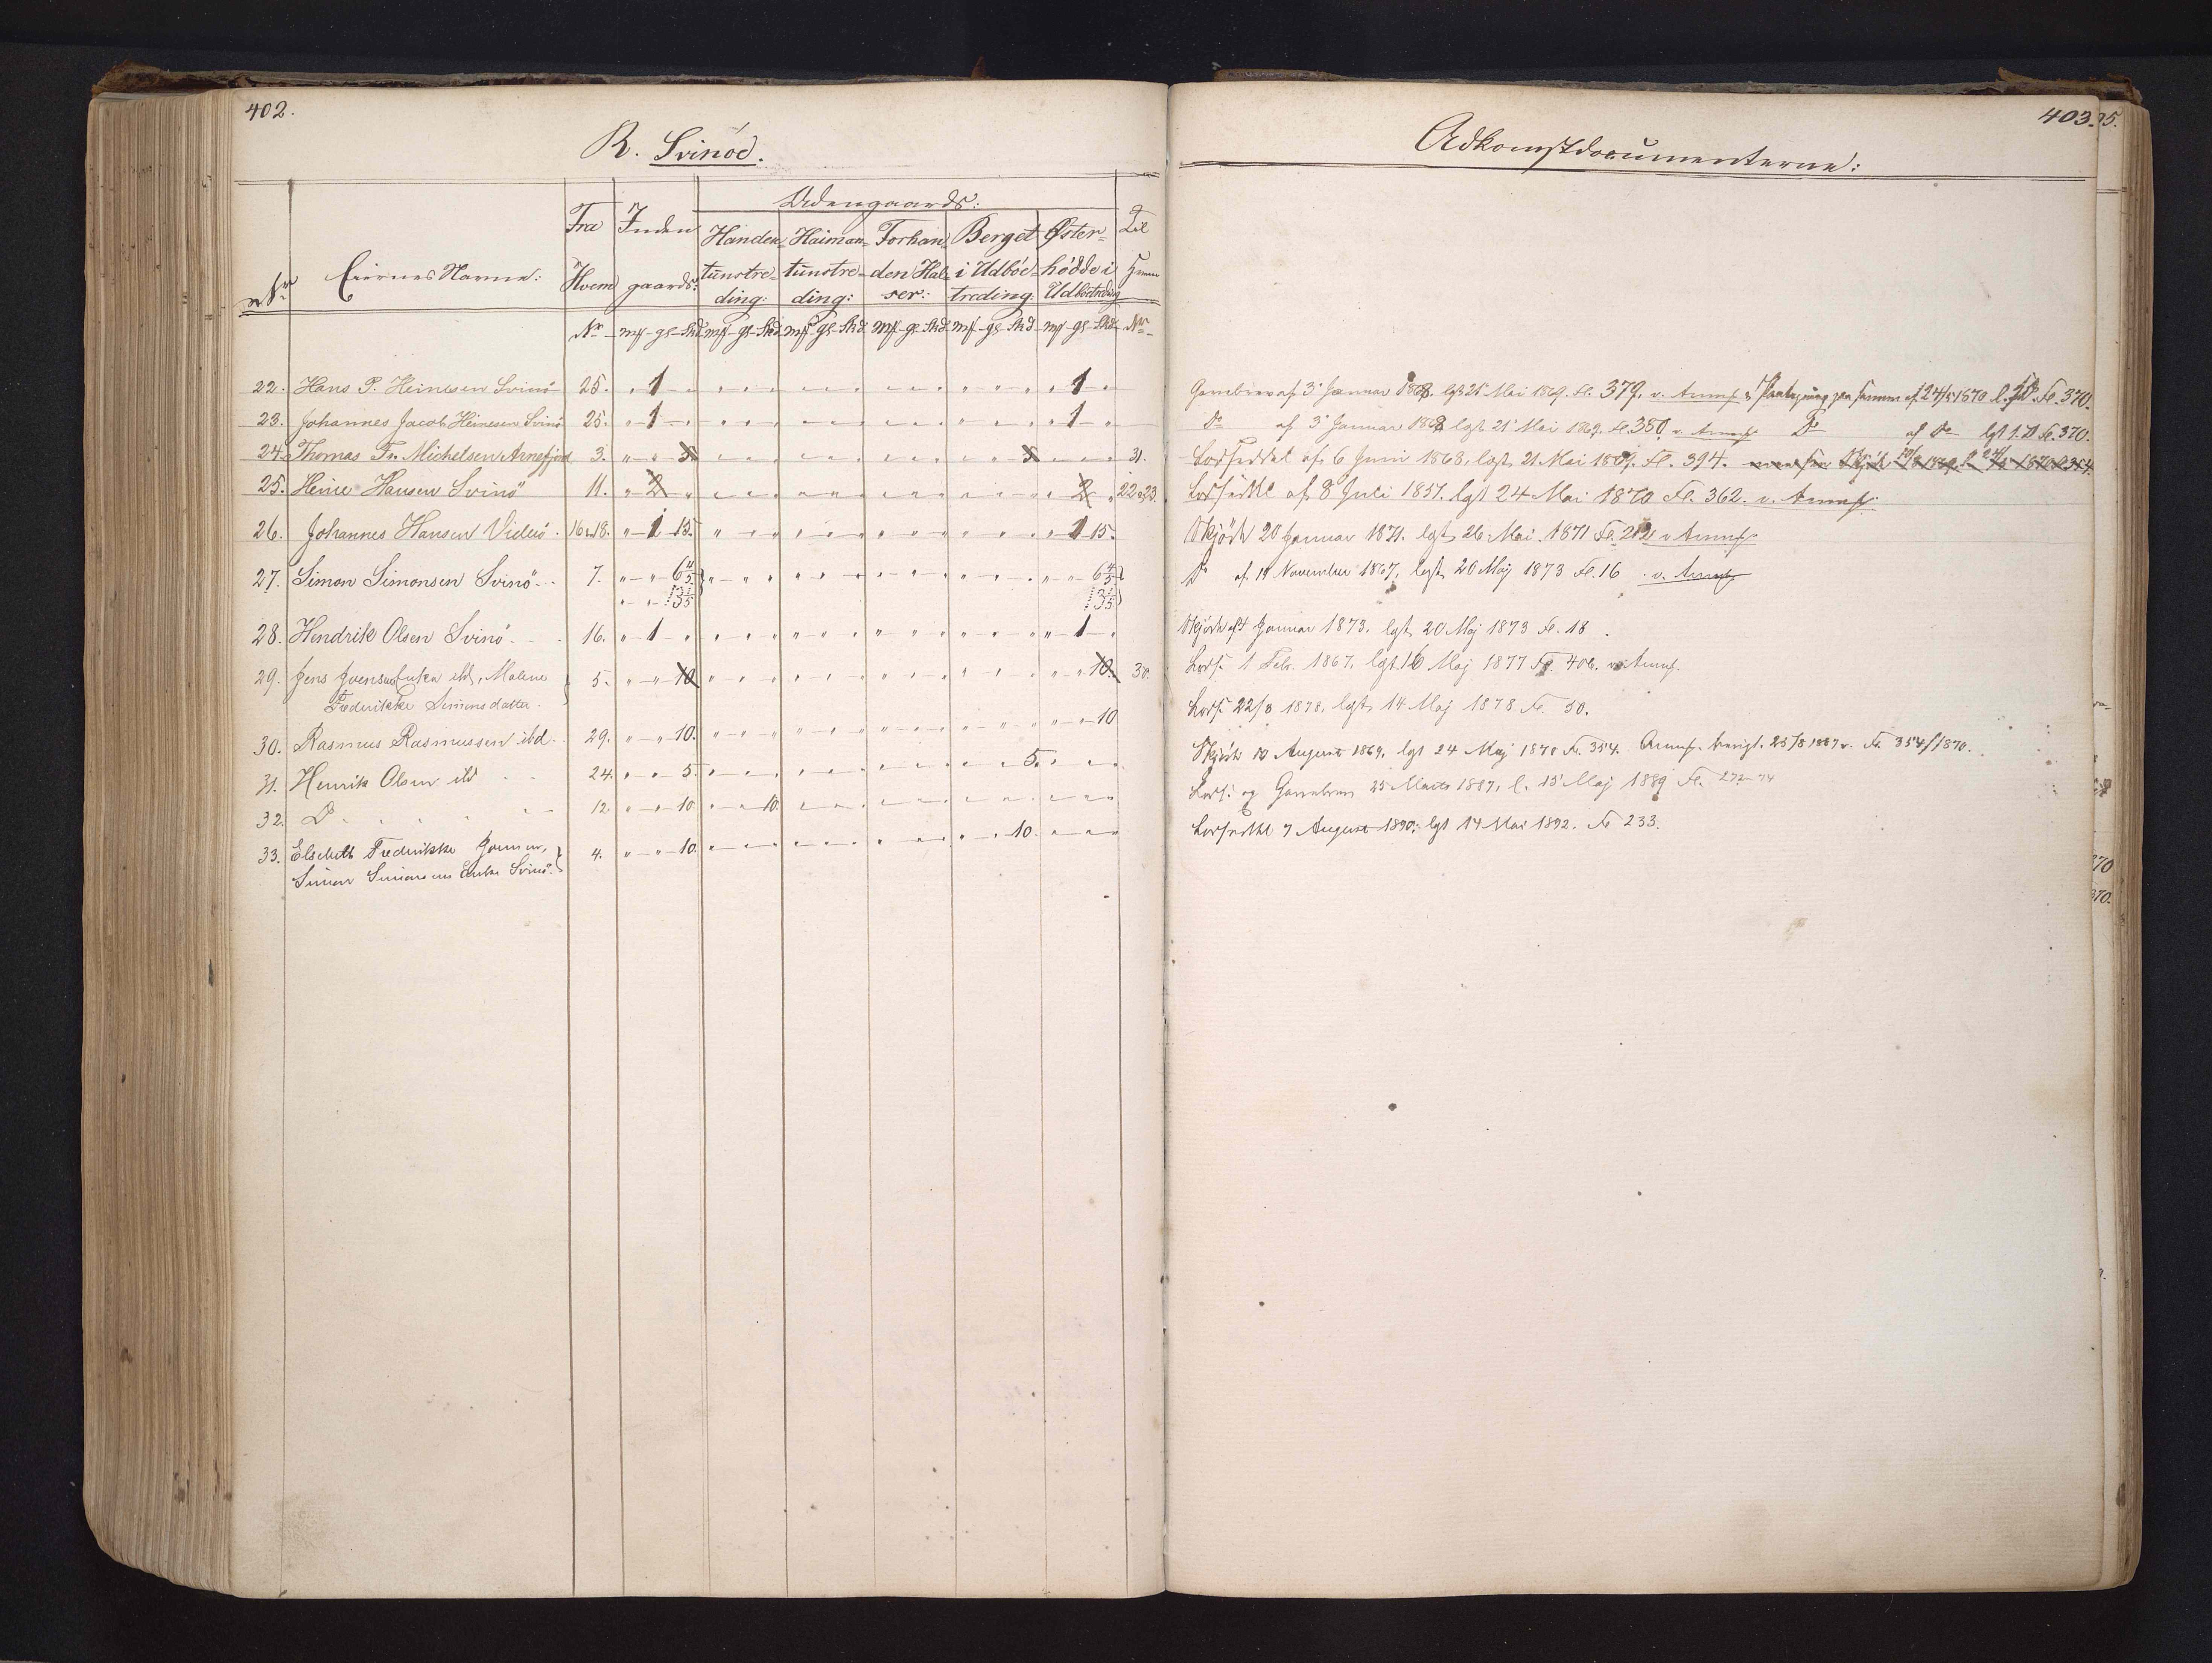 402.
R. Svinöe.
Udengaards:
Nr. Eiernes Navne: Fra Hvem Inden gaards: Handen- tunstre- ding: Haiman- tunstre- ding: Forhan- den Hal- ser: Berget i Udböe- treding: Øster- hödde i Udböetreding Til Hvem
Nr mk-gl-Skd mk-gl-Skd mk gl-Skd mk-gl-Skd mk-gl-Skd mk gl-Skd Nr
22. Hans P. Heinesen Svinö 25. " 1 " " 1 "
23. Johannes Jacob Heinesen Svinö 25. " 1 " " 1 "
24. Thomas Fr. Michelsen Arnefjord 3. " " 5 5 31.
25. Heine Hansen Svinö 11. " 2 " " 2 " 22 & 23.
26. Johannes Hansen Videiö. 16 & 18. " 1 15. " 1 15.
27. Simon Simonsen Svinö 7. " " 6 4/5 " " 6 4/5
" " 13 1/5 13 1/5
28. Hendrik Olsen Svinö 16. " 1 " " 1 "
29. Jens Joensens Enke ibd, Malene 5. " " 10 " " 10. 30.
Frederikke Simonsdatter.
30. Rasmus Rasmussen ibd. 29. " " 10. " " 10
31. Henrik Olsen ibd 24. " " 5. 5.
32. Do 12. " " 10 " " 10.
33. Elsebeth Frederikke Joensen, 4. " " 10. " " 10.
Simon Simonsens Enke Svinö.
403.
Adkomstdocumenterne:
Gavebrev af 3' Januar 1868. lgst 21' Mai 1869. Fl. 379. v. Anmk & Paategning paa samme af 24/5 1870 l. s. D. Fl. 370.
Do af 3' Januar 1868 lgst 21' Mai 1869. Fl. 380 v. Anmk. Do af Do lgst s. D Fl. 370.
Lodseddel af 6 Juni 1868, læst 21 Mai 1869. Fl. 394.
Lodseddel af 8 Juli 1857. lgst 24 Mai 1870 Fl. 362. v. Anmk.
Skjöde 20 Januar 1871. lgst 26 Mai 1871 Fl. 212 v Anmk
Do af 19 November 1867, lgst 20 Maj 1873 Fl. 16 v. Anmk
Skjöde af 4 Januar 1873. lgst 20 Maj 1873 Fl. 18.
Lods. 1 Febr. 1867, lgst 16 Maj 1877 Fl. 406. v. Anmk.
Lods. 22/8 1878, lgst 14 Maj 1878 Fl. 50.
Skjöde 10 August 1869. lgst 24 Maj 1870 Fl. 354. Anmk. 25/5 1887 v. Fl. 354/1870.
Lods. og Gavebrev 25 Marts 1887, l. 15 Maj 1889 Fl. 272-74
Lodseddel 7 August 1890: lgst 14 Mai 1892. Fl 233.